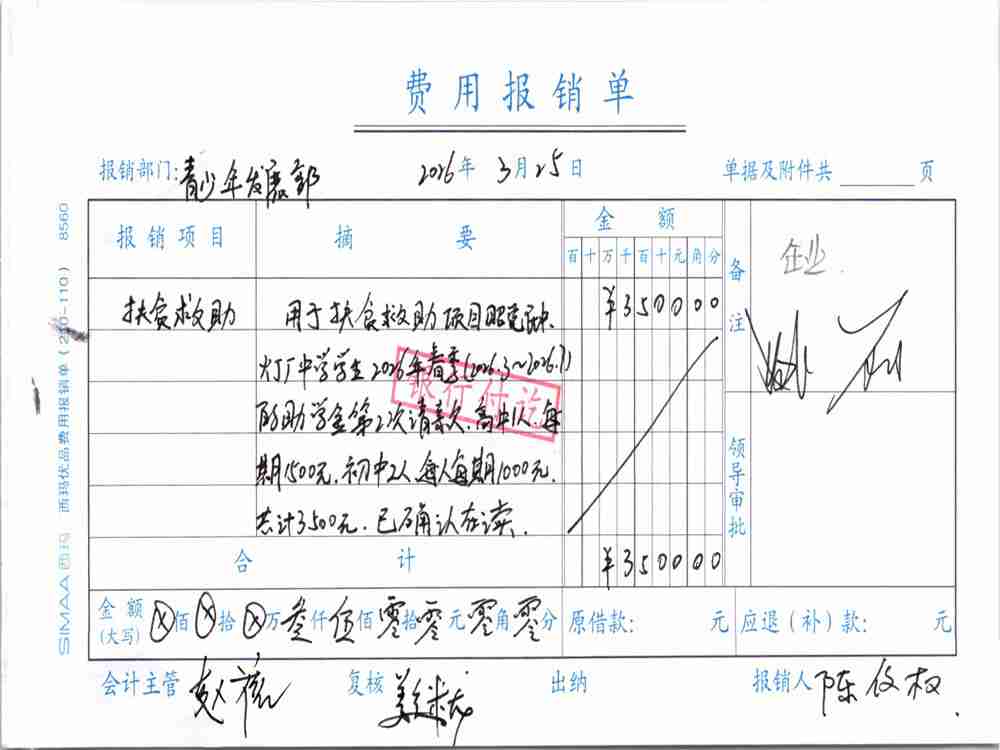 费用报销单
报销部门:青少年发展部 2026年3月25日 单据及附件共 页
报销项目 摘要 金额
百十万千百十元角分
备注
企业.
扶贫救助 用于扶贫救助项目昭觉民中、 ¥350000
灯厂中学学生2026年春季(2026.3~2026.7)
的助学金第2次请款,高中1人,每
期1500元,初中2人,每人每期1000元,
共计3500元.已确认在读.
银行付讫
领导审批
合计 ¥350000
金额(大写) ⊗佰⊗拾⊗万叁仟伍佰零拾零元零角零分 原借款: 元 应退(补)款: 元
会计主管 复核 出纳 报销人 陈俊权
SIMAA 西玛 西玛优品费用报销单(210-110) 8560